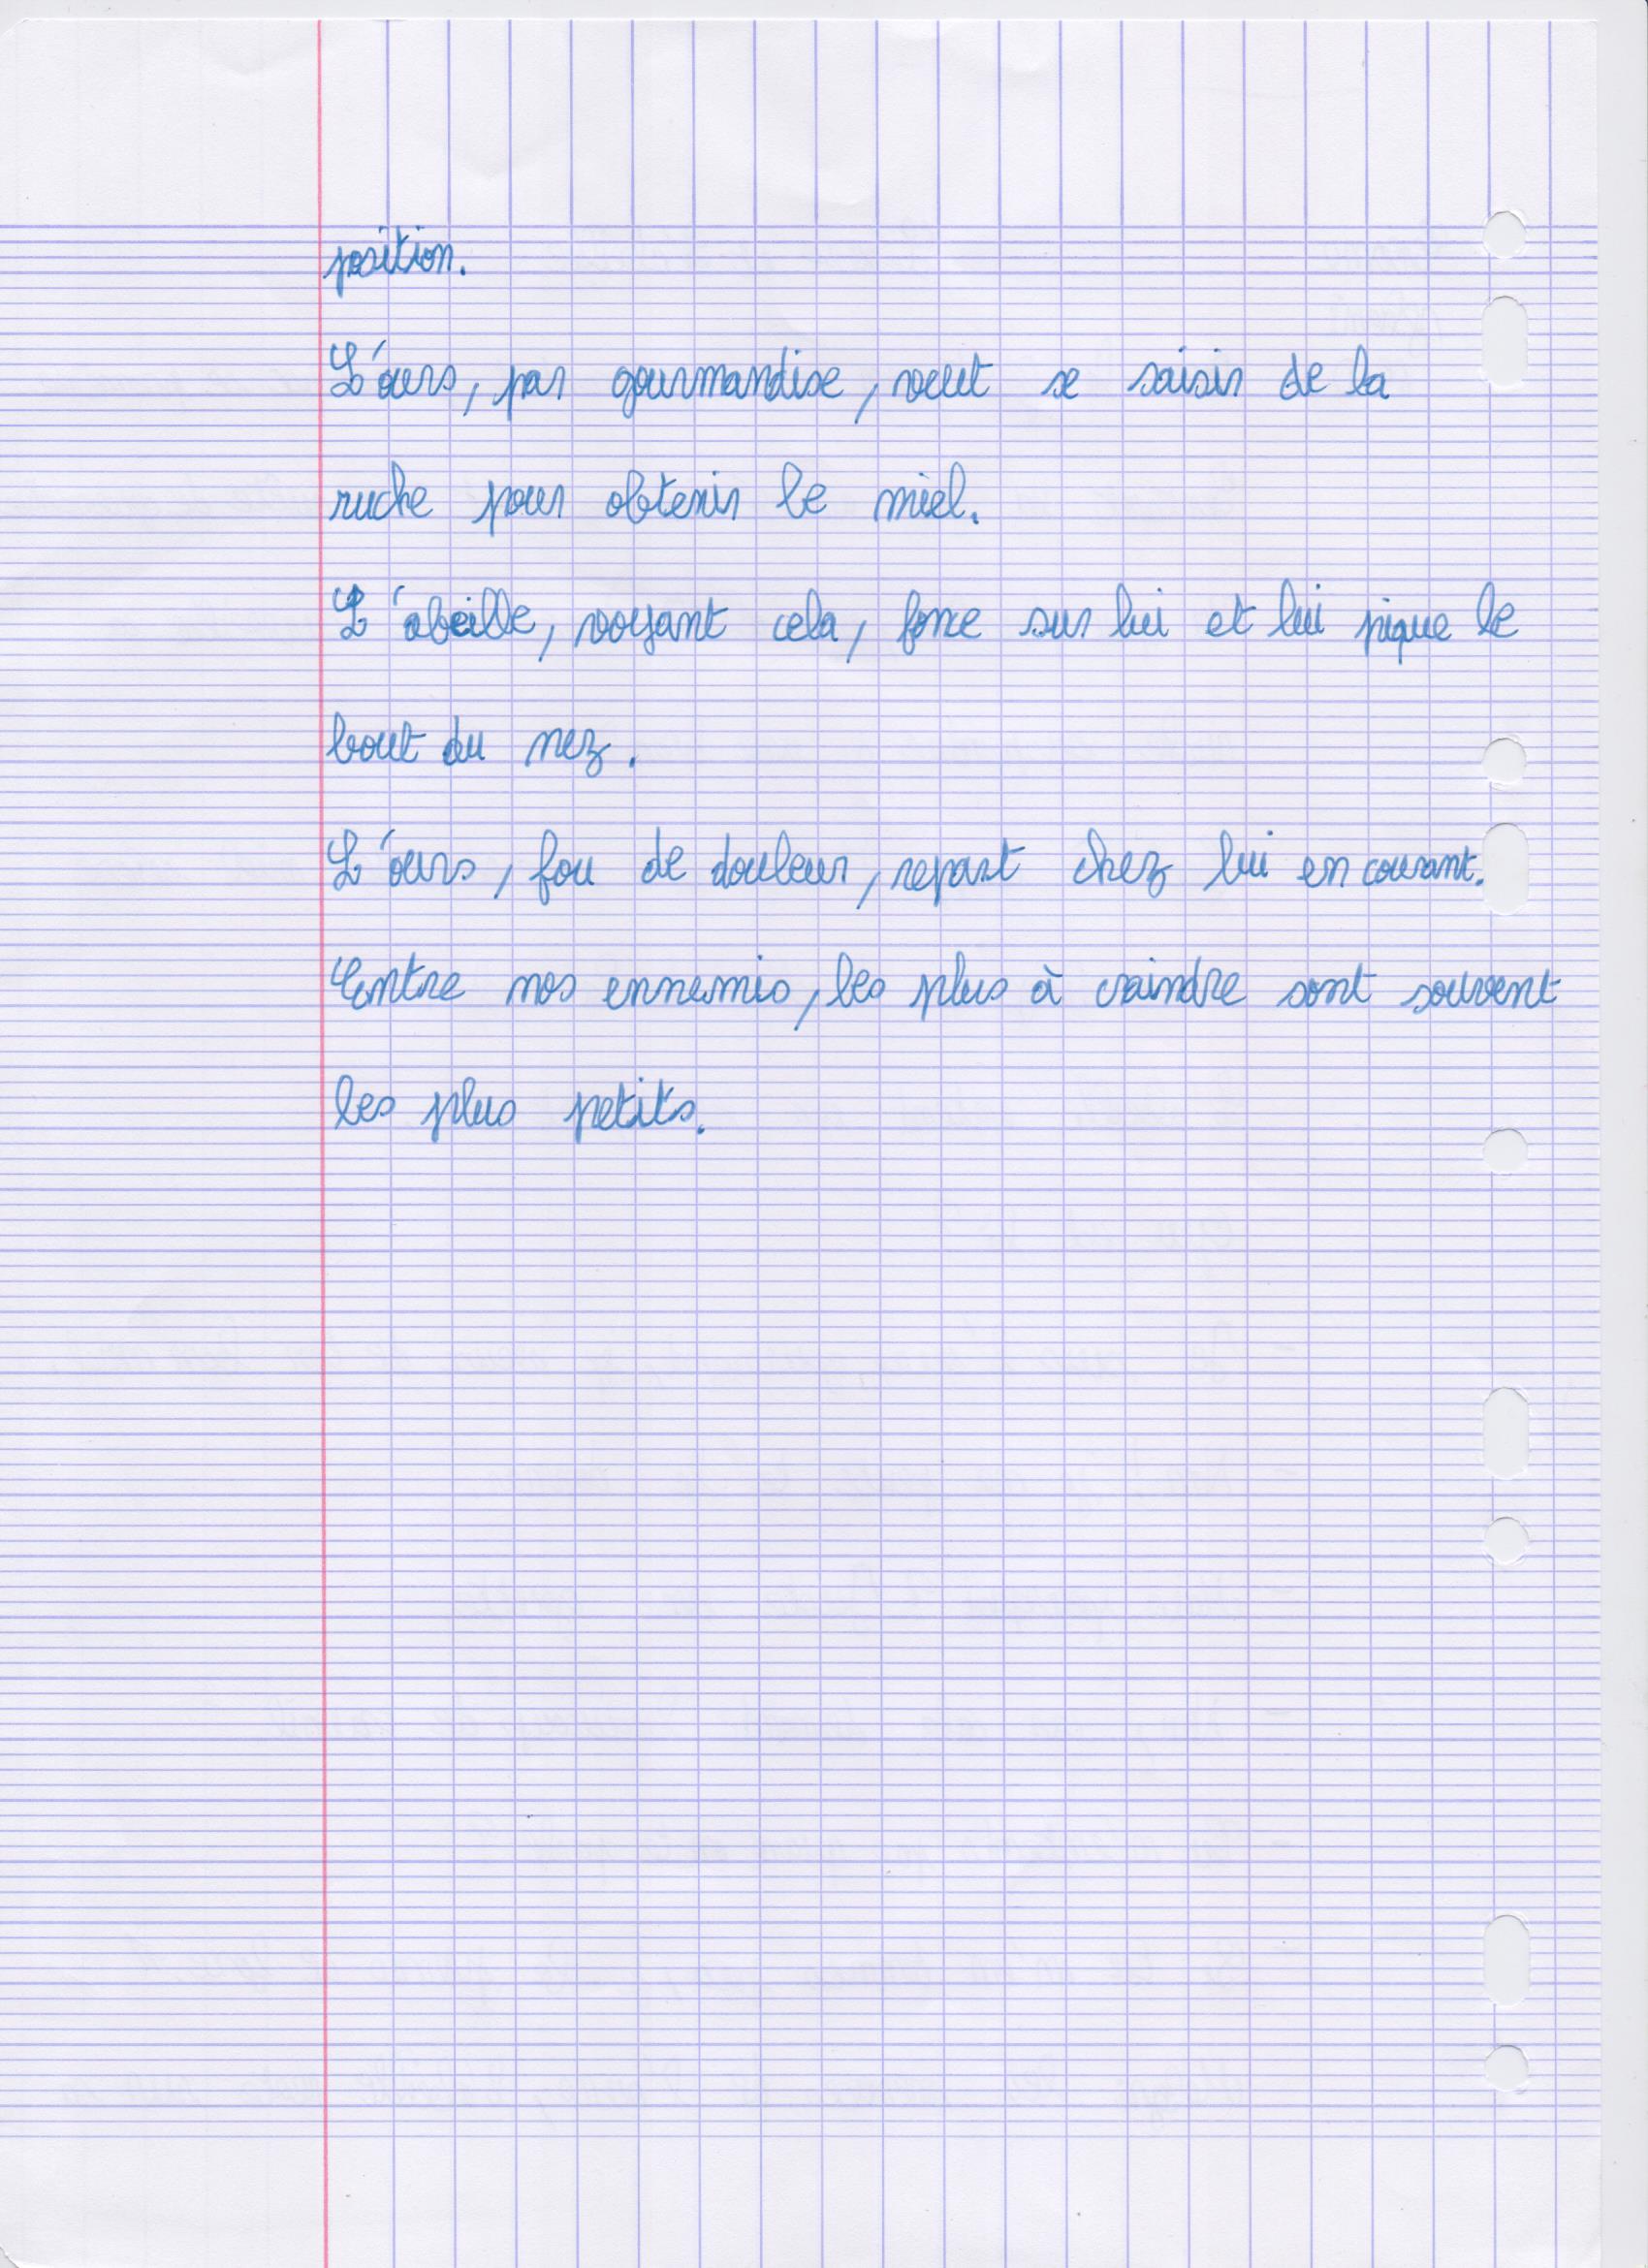 position.
L'ours, par gourmandise, veut se saisir de la
ruche pour obtenir le miel.
L'abeille, voyant cela, fonce sur lui et lui pique le
bout du nez.
L'ours, fou de douleur, repart chez lui en courant.
Entre nos ennemis, les plus à craindre sont souvent
les plus petits.